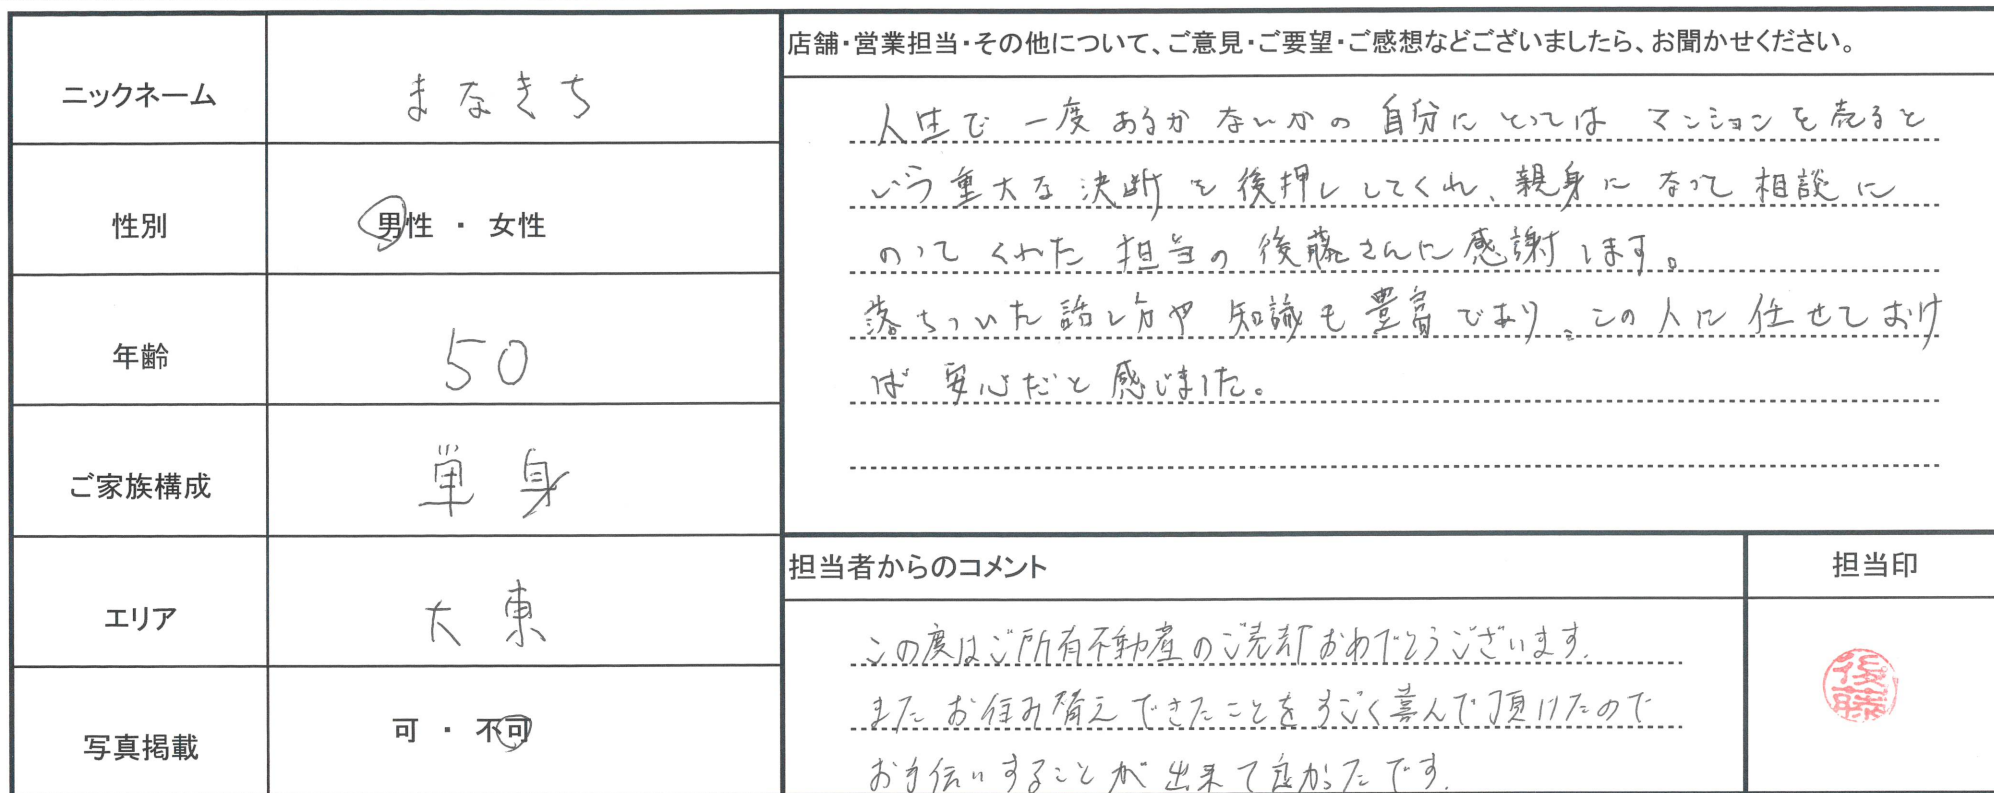 ニックネーム
まなきち
性別
男性 ・ 女性
年齢
50
ご家族構成
単身
エリア
大東
写真掲載
可 ・ 不可
店舗・営業担当・その他について、ご意見・ご要望・ご感想などございましたら、お聞かせください。
人生で一度あるかないかの自分にとってはマンションを売ると
いう重大な決断を後押ししてくれ、親身になって相談に
のってくれた担当の後藤さんに感謝します。
落ちついた話し方や知識も豊富であり、この人に任せておけ
ば安心だと感じました。
担当者からのコメント
この度はご所有不動産のご売却おめでとうございます。
またお住み替えできたことをすごく喜んで頂けたので
お手伝いすることが出来て良かったです。
担当印
後藤